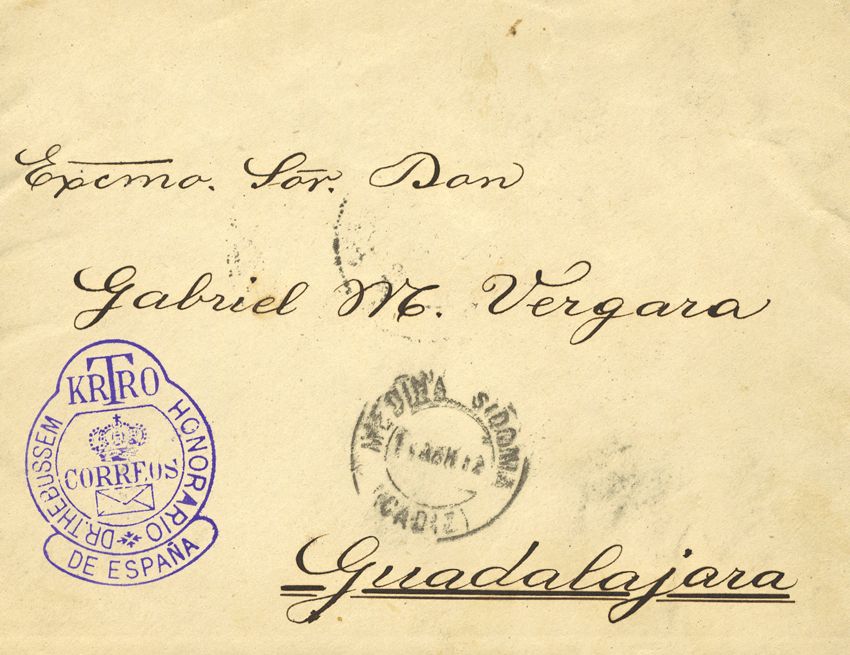 Excmo. Sor. Don
Gabriel M. Vergara
KRTRO
DR. THEBUSSEM HONORARIO
CORREOS
DE ESPAÑA
MEDINA SIDONIA
(CADIZ)
Guadalajara